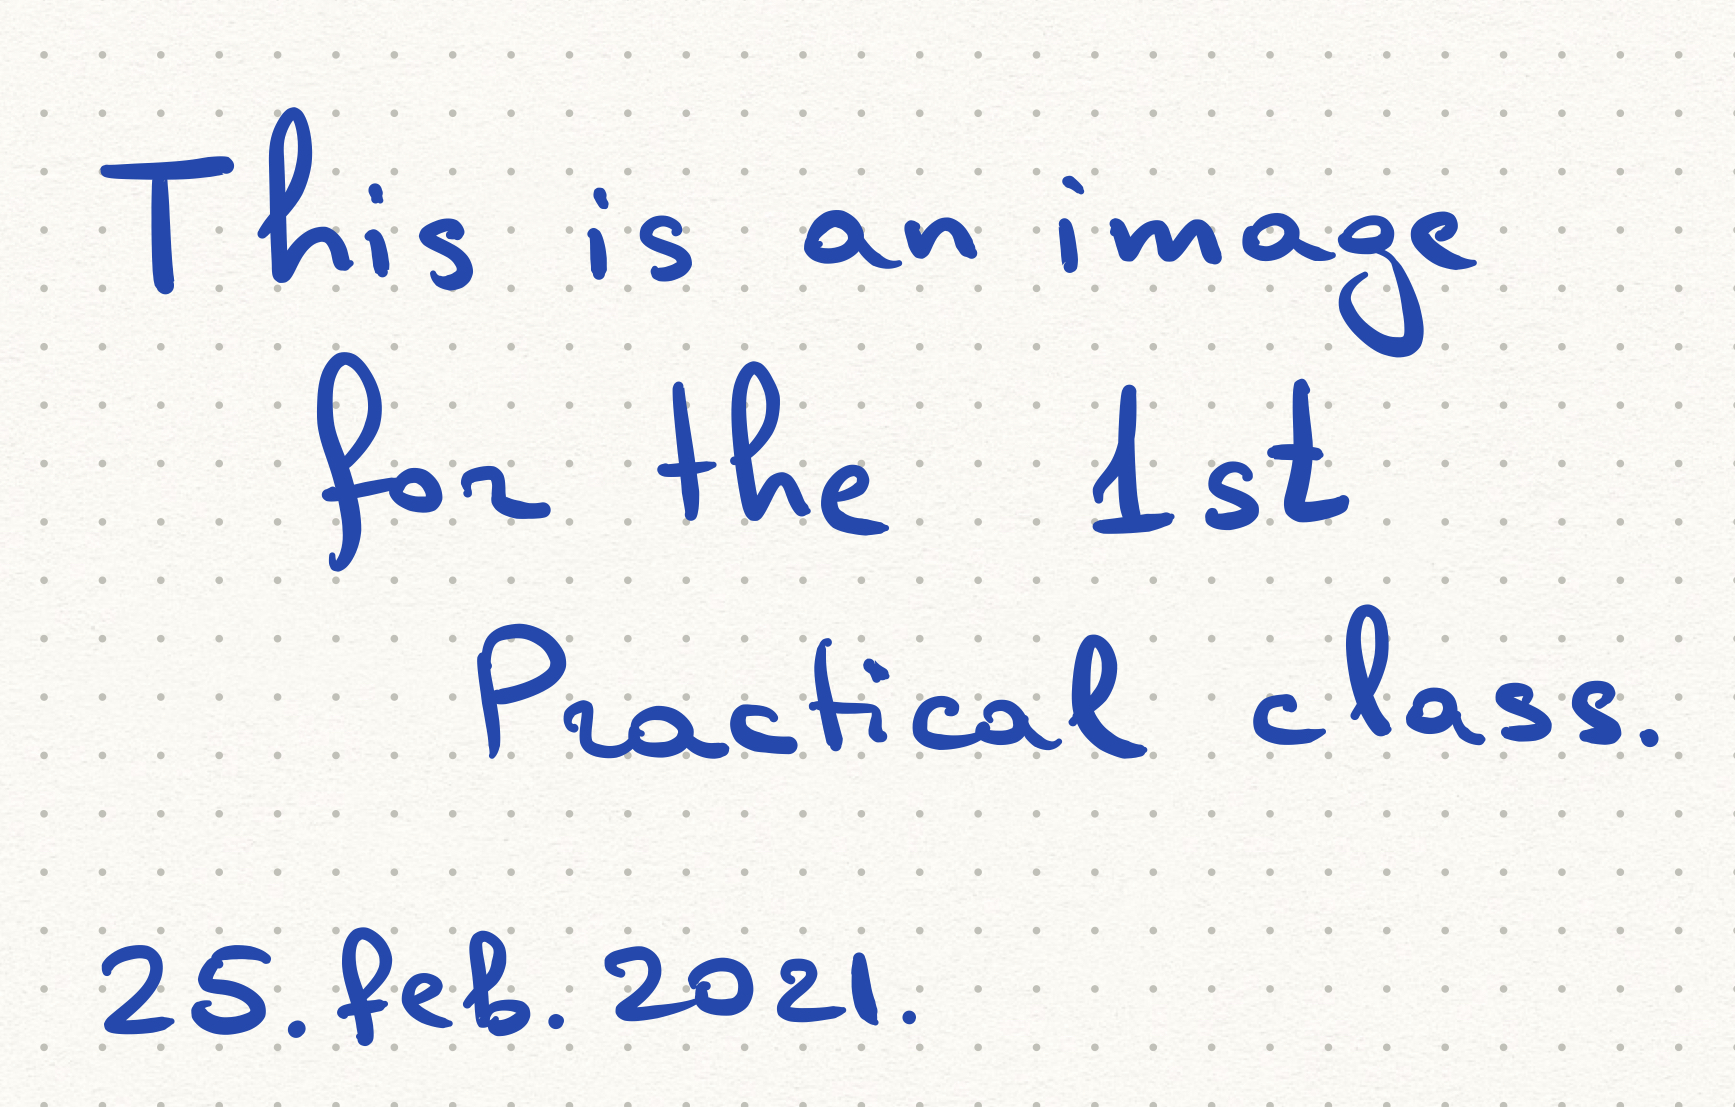 This is an image
for the 1st
Practical class.
25. feb. 2021.